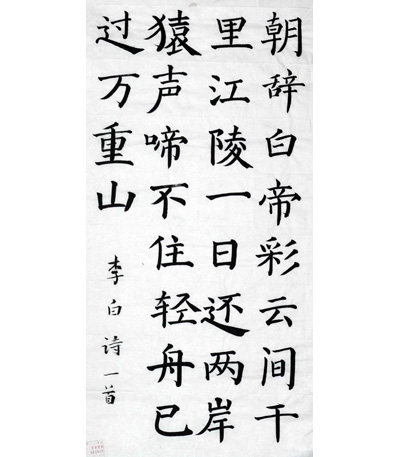 朝辞白帝彩云间千
里江陵一日还两岸
猿声啼不住轻舟已
过万重山
李白诗一首